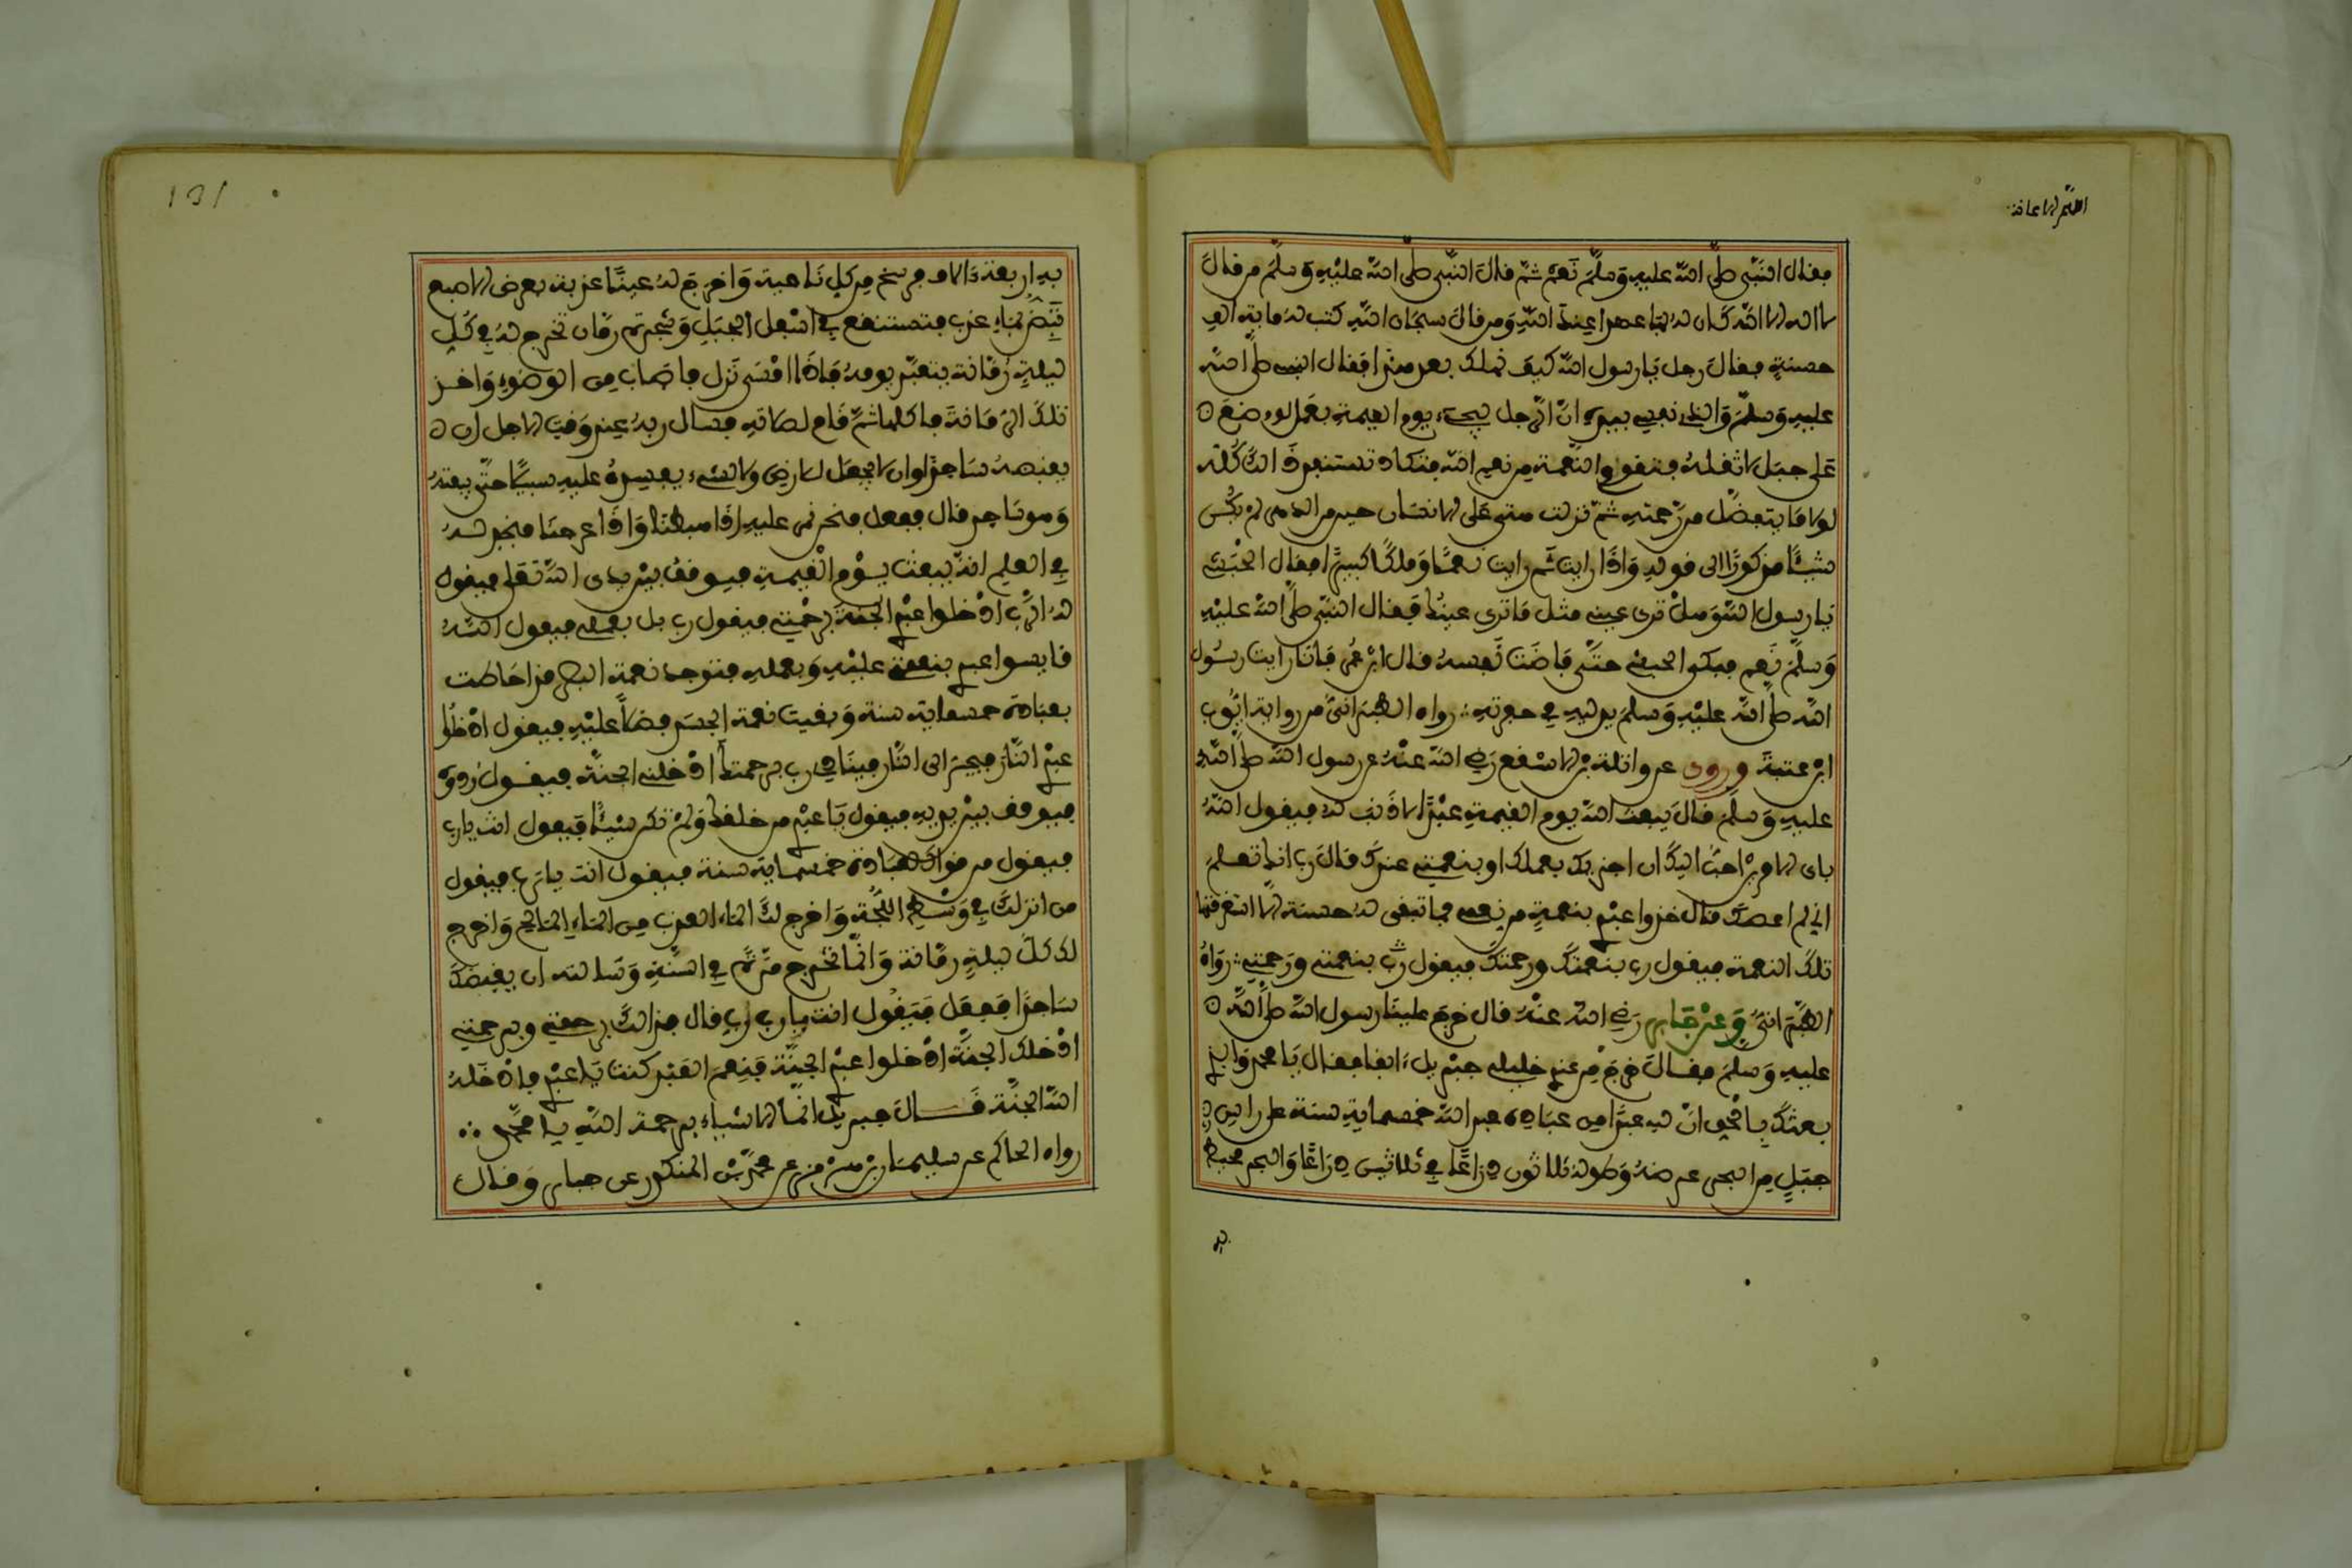 اللهم
فقال النبي صلى الله عليه وسلم نعم ثم قال النبي صلى الله عليه وسلم من قال
لا اله الا الله كان له بها عهدا عند الله ومن قال سبحان الله كتب له ماية الف
حسنة فقال رجل يا رسول الله كيف نهلك بعد هذا فقال النبي صلى الله
عليه وسلم والذي نفسي بيده ان الرجل ليجيء يوم القيمة بعمل لو وضع
على جبل لاثقله فتقوم النعمة من نعم الله فتكاد تستنفد ذالك كله
لولا ما يتفضل من رحمته ثم نزلت هل اتى على الانسان حين من الدهر لم يكن
شيئا مذكورا الى قوله واذا رايت ثم رايت نعيما وملكا كبيرا فقال الحبشي
يا رسول الله وهل ترى عيني مثل ما ترى عينك فقال النبي صلى الله عليه
وسلم نعم فبكى الحبشي حتى فاضت نفسه قال ابن عمر فانا رايت رسول
الله صلى الله عليه وسلم يدليه في حفرته رواه الطبراني من رواية ايوب
ابن عتبة وروي عن واثلة بن الاسقع رضي الله عنه عن رسول الله صلى الله
عليه وسلم قال يبعث الله يوم القيمة عبدا لا ذنب له فيقول الله
باي الامرين احب اليك ان اجزيك بعملك او بنعمتي عندك قال رب انك تعلم
اني لم اعصك قال خذوا عبدي بنعمة من نعمي فما تبقى له حسنة الا استغرقتها
تلك النعمة فيقول رب بنعمتك ورحمتك فيقول بنعمتي ورحمتي رواه
الطبراني وعن جابر رضي الله عنه قال خرج علينا رسول الله صلى الله
عليه وسلم فقال خرج من عندي خليلي جبريل ءانفا فقال يا محمد والذي
بعثك بالحق ان لله عبدا من عباده عبد الله خمسماية سنة على راس
جبل من البحر عرضه وطوله ثلاثون ذراعا في ثلاثين ذراعا والبحر محيط
به
131
به اربعة ءالاف فرسخ من كل ناحية واخرج له عينا عذبة بعرض الاصبع
تبض بماء عذب فتستنقع في اسفل الجبل وشجرة رمان تخرج له في كل
ليلة رمانة يتعبد يومه فاذا امسى نزل فاصاب من الوضوء واخذ
تلك الرمانة فاكلها ثم قام لصلاته فسال ربه عند وقت الاجل ان
يقبضه ساجدا وان لا يجعل للارض ولا لشيء يفسده عليه سبيلا حتى يبعثه
وهو ساجد قال ففعل فنحن نمر عليه اذا هبطنا واذا عرجنا فنجد له
في العلم انه يبعث يوم القيمة فيوقف بين يدي الله تعلى فيقول
له الرب ادخلوا عبدي الجنة برحمتي فيقول رب بل بعملي فيقول الله
قايسوا عبدي بنعمتي عليه وبعمله فتوجد نعمة البصر قد احاطت
بعبادة خمسماية سنة وبقيت نعمة الجسد فضلا عليه فيقول ادخلوا
عبدي النار فيجر الى النار فينادي رب برحمتك ادخلني الجنة فيقول ردوه
فيوقف بين يديه فيقول يا عبدي من خلقك ولم تك شيئا فيقول انت يا رب
فيقول من قواك لعبادة خمسماية سنة فيقول انت يا رب فيقول
من انزلك في وسط اللجة واخرج لك الماء العذب من الماء المالح واخرج
لك كل ليلة رمانة وانما تخرج مرة في السنة وسالته ان يقبضك
ساجدا ففعل فيقول انت يا رب قال فذالك برحمتي وبرحمتي
ادخلك الجنة ادخلوا عبدي الجنة فنعم العبد كنت يا عبدي فادخله
الله الجنة قال جبريل انما الاشياء برحمة الله يا محمد
رواه الحاكم عن سليمان بن هرم عن محمد بن المنكدر عن جابر وقال